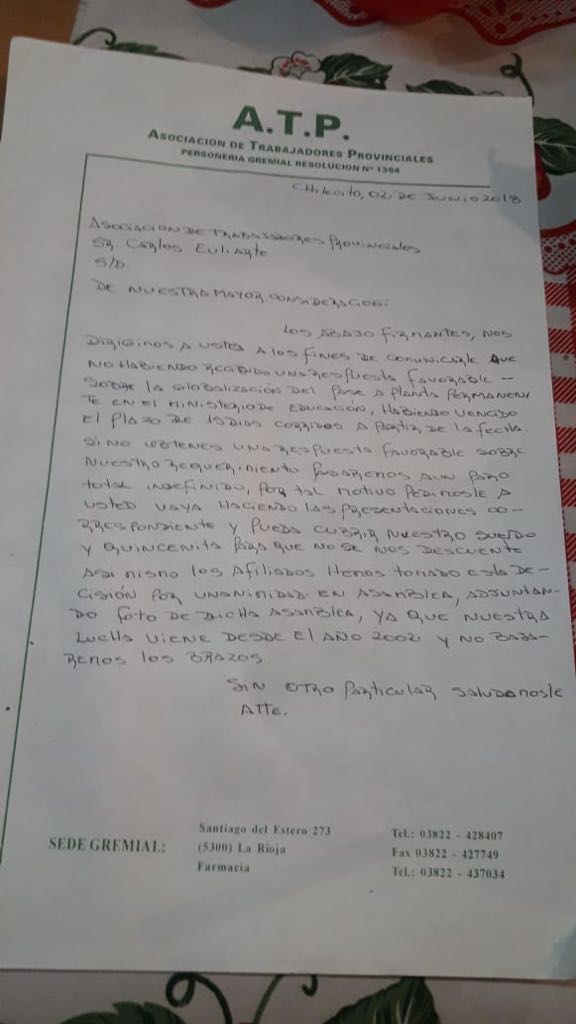 A.T.P.
ASOCIACION DE TRABAJADORES PROVINCIALES
PERSONERIA GREMIAL RESOLUCION Nº 1364
CHILECITO, 02 DE JUNIO 2018
ASOCIACION DE TRABAJADORES PROVINCIALES
SR CARLOS EULIARTE
S/D
DE NUESTRA MAYOR CONSIDERACION:
LOS ABAJO FIRMANTES, NOS
DIRIGIMOS A USTED A LOS FINES DE COMUNICARLE QUE
NO HABIENDO RECIBIDO UNA RESPUESTA FAVORABLE -
SOBRE LA GLOBALIZACIÓN DEL PASE A PLANTA PERMANEN
TE EN EL MINISTERIO DE EDUCACIÓN, HABIENDO VENCIDO
EL PLAZO DE 15 DIAS CORRIDOS A PARTIR DE LA FECHA.
SI NO OBTENES UNA RESPUESTA FAVORABLE SOBRE
NUESTRO REQUERIMIENTO PASAREMOS A UN PARO
TOTAL INDEFINIDO, POR TAL MOTIVO PEDIMOSLE A
USTED VAYA HACIENDO LAS PRESENTACIONES CO-
RRESPONDIENTE Y PUEDA CUBRIR NUESTRO SUELDO
Y QUINCENITA PARA QUE NO SE NOS DESCUENTE
ASI MISMO LOS AFILIADOS HEMOS TOMADO ESTA DE-
CISIÓN POR UNANIMIDAD EN ASAMBLEA, ADJUNTAN-
DO FOTO DE DICHA ASAMBLEA, YA QUE NUESTRA
LUCHA VIENE DESDE EL AÑO 2002 Y NO BAJA-
REMOS LOS BRAZOS.
SIN OTRO PARTICULAR SALUDAMOSLE
ATTE.
SEDE GREMIAL:
Santiago del Estero 273
(5300) La Rioja
Farmacia
Tel.: 03822 - 428407
Fax 03822 - 427749
Tel.: 03822 - 437034